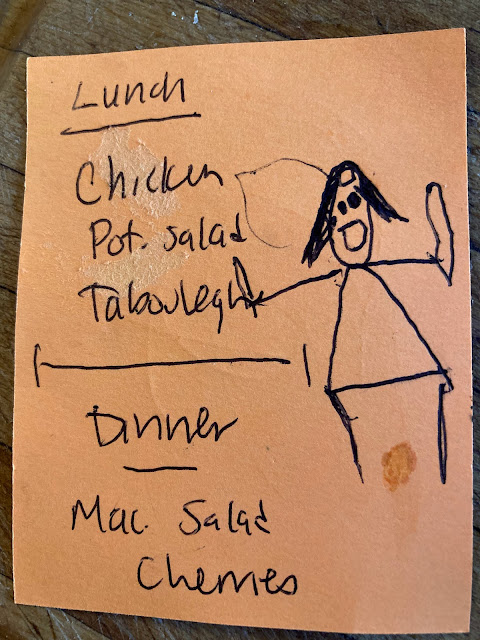 Lunch
Chicken
Pot. Salad
Tabouleghh
Dinner
Mac. Salad
Cherries